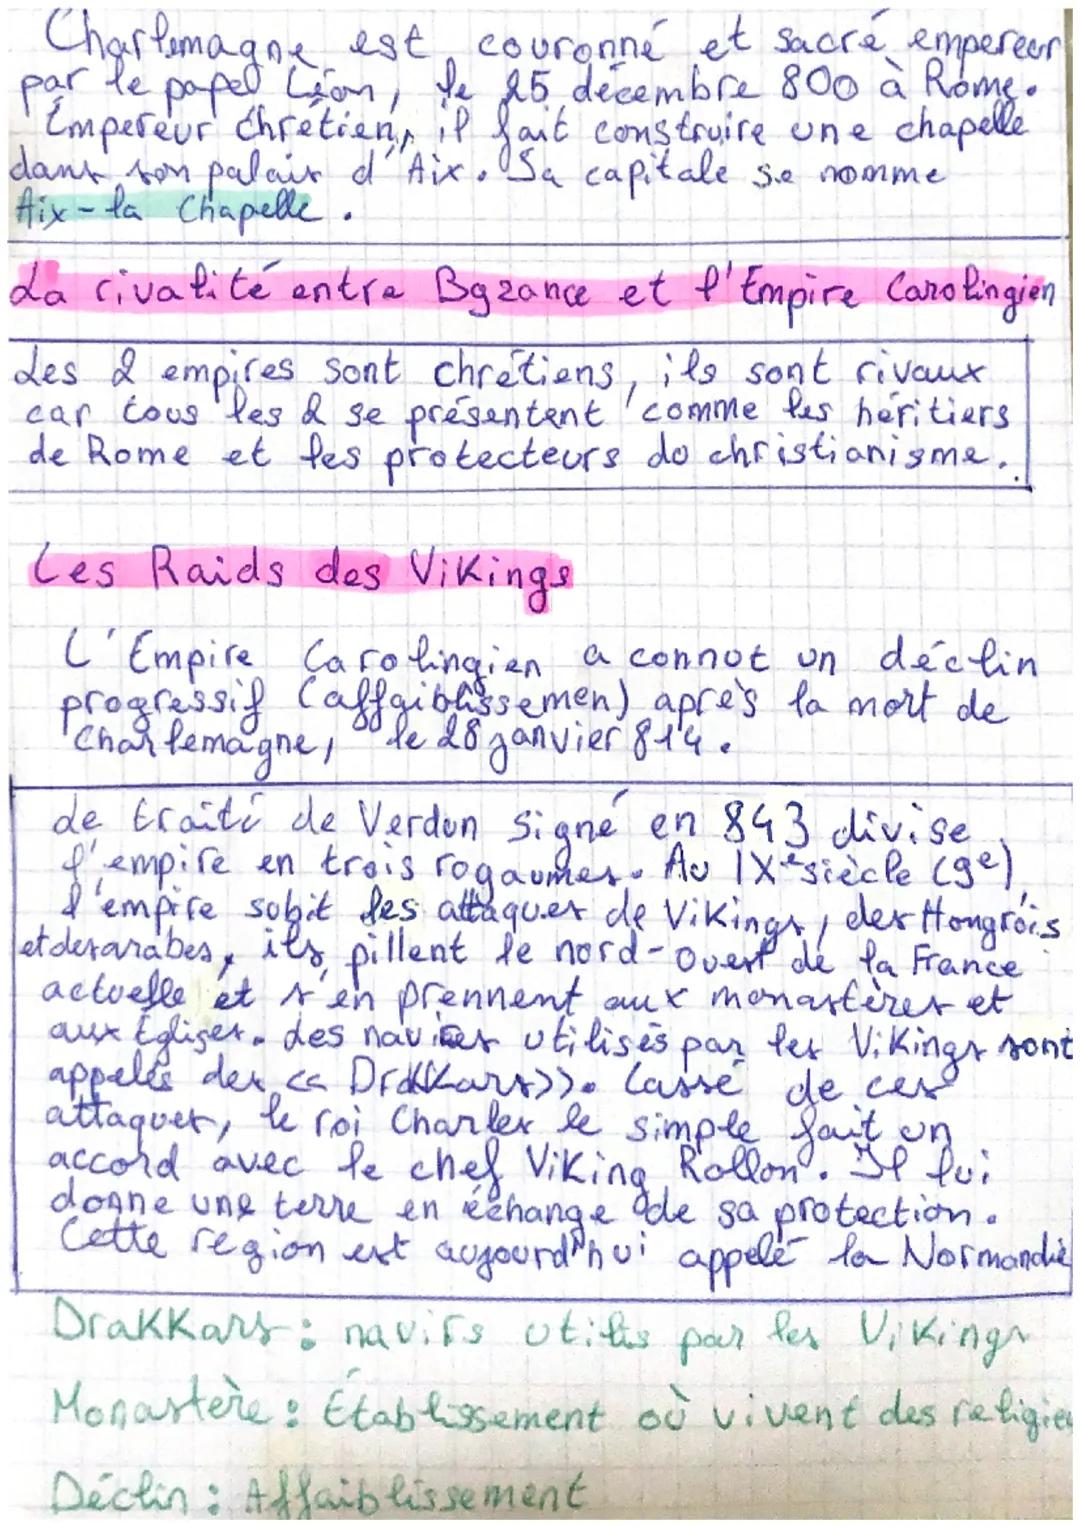 Charlemagne est couronné et sacré empereur
par le papel Léon, le 25 décembre 800 à Rome.
Empereur chrétien, il fait construire une chapelle
dans son palais d'Aix. Sa capitale se nomme
Aix-la Chapelle.
La rivalité entre Byzance et l'Empire Carolingien
Les 2 empires sont chrétiens, ils sont rivaux
car tous les 2 se présentent comme les héritiers
de Rome et les protecteurs du christianisme.
Les Raids des Vikings
L'Empire Carolingien a connut un déclin
progressif (affaiblissemen) après la mort de
Charlemagne, le 28 janvier 814.
Le traité de Verdun signé en 843 divise
l'empire en trois royaumes. Au IXe siècle (9e),
l'empire subit les attaques de Vikings, des Hongrois
et des arabes, ils pillent le nord-ouest de la France
actuelle et s'en prennent aux monastères et
aux Églises. Les navires utilisés par les Vikings sont
appelés des << Drakkars>>. Lassé de ces
attaques, le roi Charles le simple fait un
accord avec le chef Viking Rollon. Il lui
donne une terre en échange de sa protection.
Cette region est aujourd'hui appelé la Normandie
Drakkars : navirs utilis par les Vikings
Monastère : Établissement où vivent des religieu
Déclin : Affaiblissement